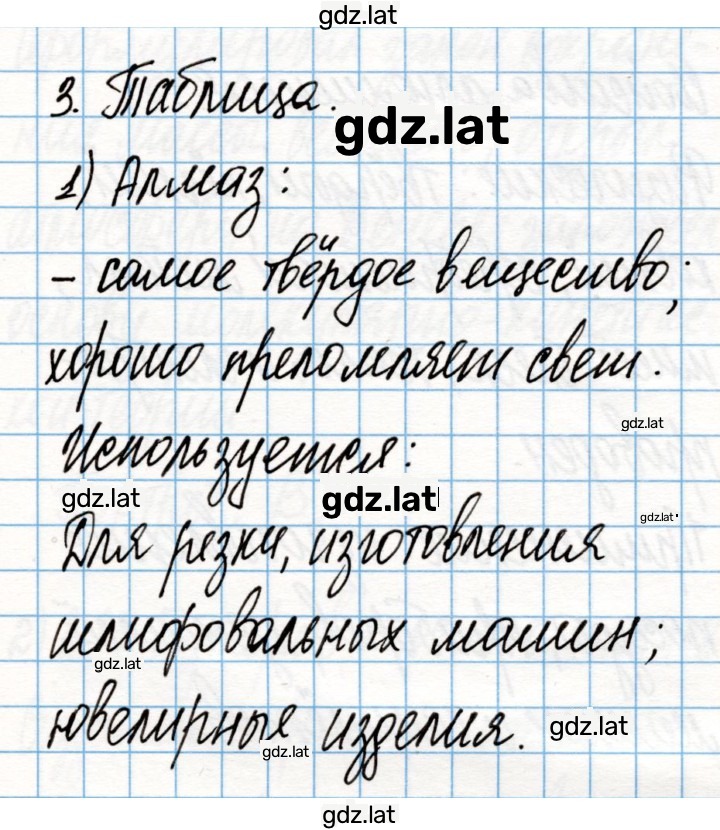 gdz.lat
3. Таблица.
gdz.lat
1) Алмаз:
- самое твёрдое вещество;
хорошо преломляет свет.
gdz.lat
Используется:
gdz.lat gdz.lat
gdz.lat
Для резки, изготовления
шлифовальных машин;
gdz.lat
ювелирные изделия.
gdz.lat
gdz.lat
gdz.lat